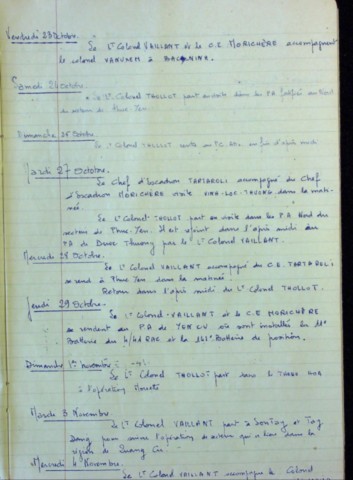 Vendredi 23 Octobre.
Le Lt Colonel VAILLANT et le C.E. MORICHÈRE accompagnent
le colonel VANUXEM à BAC NINH.
Samedi 24 Octobre.
Le Lt Colonel THOLLOT part en visite dans les P.A
secteur de Thuc Yen.
Dimanche 25 Octobre.
Le Lt Colonel THOLLOT rentre au P.C. en fin d'après midi
Mardi 27 Octobre.
Le Chef d'Escadron TARTAROLI accompagné du Chef
d'Escadron MORICHÈRE visite VINH-LOC-THUONG dans la mati-
née.
Le Lt Colonel THOLLOT part en visite dans les P.A Nord du
secteur de Thuc-Yen. Il est rejoint dans l'après midi au
P.A de Thuong par le Lt Colonel VAILLANT.
Mercredi 28 Octobre.
Le Lt Colonel VAILLANT accompagné du C.E. TARTAROLI
se rend à Thuc Yen dans la matinée.
Retour dans l'après midi du Lt Colonel THOLLOT.
Jeudi 29 Octobre.
Le Lt Colonel VAILLANT et le C.E MORICHÈRE
se rendent au P.A de YEN CU où sont installés la 11e
Batterie du 4/4 RAC et la 141e Batterie de position.
Dimanche 1er novembre
Le Lt Colonel THOLLOT part vers le THANH HOA
à l'opération Mouette
Mardi 3 Novembre.
Le Lt Colonel VAILLANT part à Sontay et Tong
pour une opération de secteur qui a lieu dans la
région de Quang Cu
Mercredi 4 Novembre.
Le Lt Colonel VAILLANT accompagne le Colonel